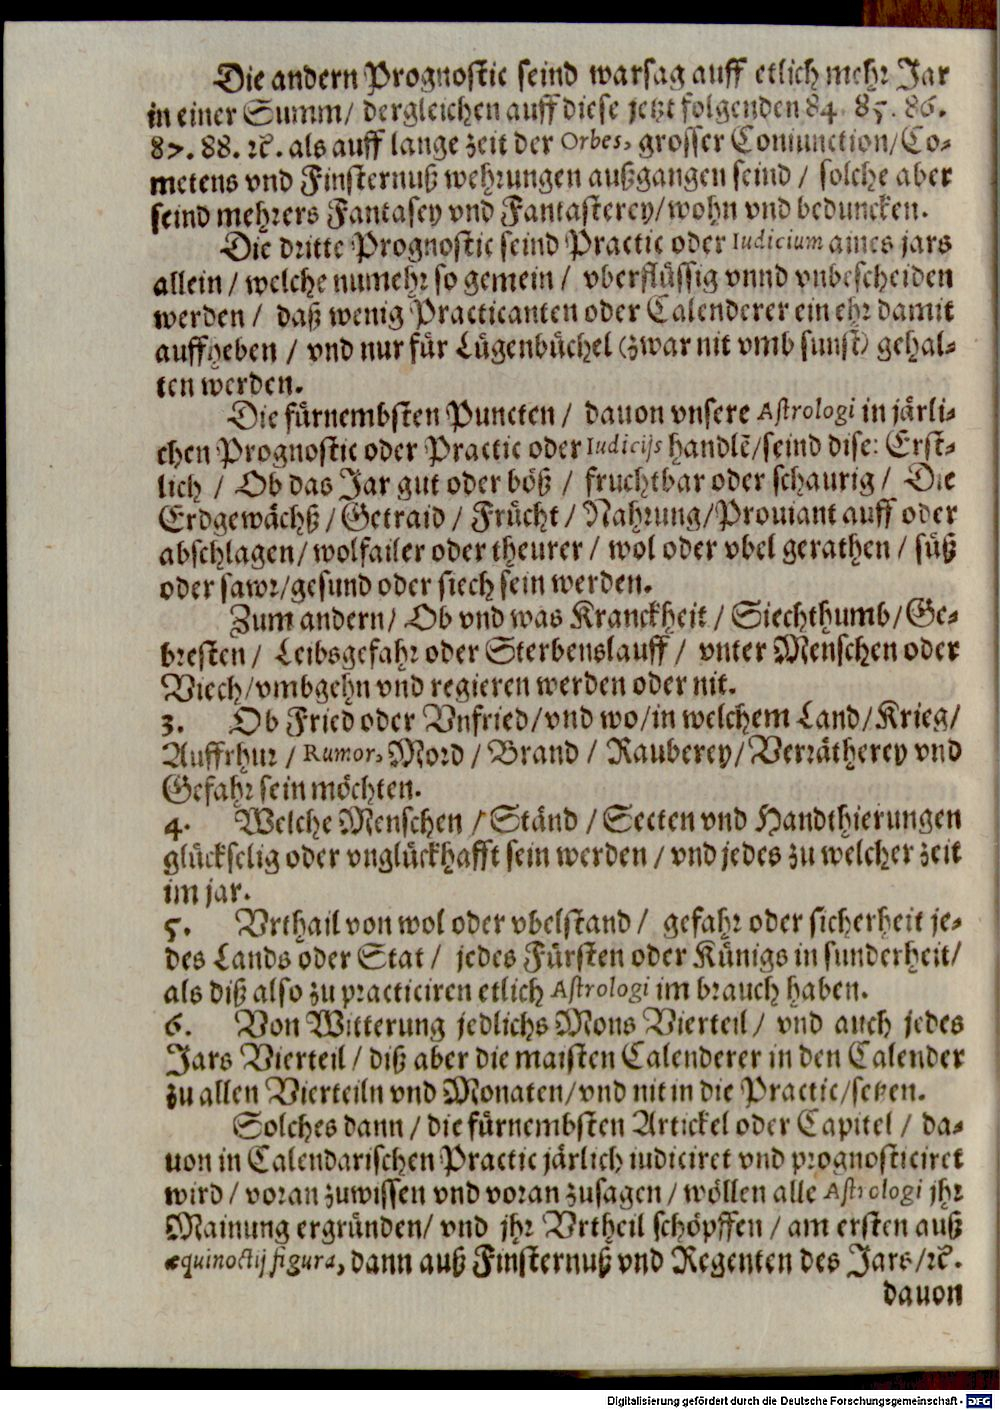 Die andern Prognostic seind warsag auff etlich mehr Jar
in einer Summ/ dergleichen auff diese jetzt folgenden 84. 85. 86.
87. 88. ꝛc. als auff lange zeit der Orbes, grosser Coniunction/ Co-
metens vnd Finsternuß wehrungen außgangen seind / solche aber
seind mehrers Fantasey vnd Fantasterey/ wohn vnd beduncken.
Die dritte Prognostic seind Practic oder Iudicium aines jars
allein / welche numehr so gemein / vberflüssig vnnd vnbescheiden
werden / daß wenig Practicanten oder Calenderer ein ehr damit
auffheben / vnd nur für Lügenbüchel (zwar nit vmb sunst) gehal-
ten werden.
Die fürnembsten Puncten / dauon vnsere Astrologi in järli-
chen Prognostic oder Practic oder Iudicijs handlẽ/ seind dise: Erst-
lich / Ob das Jar gut oder böß / fruchtbar oder schaurig / Die
Erdgewächß / Getraid / Frücht / Nahrung/ Prouiant auff oder
abschlagen/ wolfailer oder theurer / wol oder vbel gerathen / süß
oder sawr/ gesund oder siech sein werden.
Zum andern/ Ob vnd was Kranckheit / Siechthumb/ Ge-
bresten / Leibsgefahr oder Sterbenslauff / vnter Menschen oder
Viech/ vmbgehn vnd regieren werden oder nit.
3. Ob Fried oder Vnfried/ vnd wo/ in welchem Land/ Krieg/
Auffrhur / Rumor, Mord / Brand / Rauberey/ Verrätherey vnd
Gefahr sein möchten.
4. Welche Menschen / Ständ / Secten vnd Handthierungen
glückselig oder vnglückhafft sein werden / vnd jedes zu welcher zeit
im jar.
5. Vrthail von wol oder vbelstand / gefahr oder sicherheit je-
des Lands oder Stat / jedes Fürsten oder Künigs in sunderheit/
als diß also zu practiciren etlich Astrologi im brauch haben.
6. Von Witterung jedlichs Mons Vierteil / vnd auch jedes
Jars Vierteil / diß aber die maisten Calenderer in den Calender
zu allen Vierteiln vnd Monaten/ vnd nit in die Practic/ setzen.
Solches dann / die fürnembsten Artickel oder Capitel / da-
uon in Calendarischen Practic järlich iudiciret vnd prognosticiret
wird / voran zuwissen vnd voran zusagen / wöllen alle Astrologi jhr
Mainung ergründen/ vnd jhr Vrtheil schöpffen / am ersten auß
æquinoctij figura, dann auß Finsternuß vnd Regenten des Jars / ꝛc.
dauon
Digitalisierung gefördert durch die Deutsche Forschungsgemeinschaft - DFG